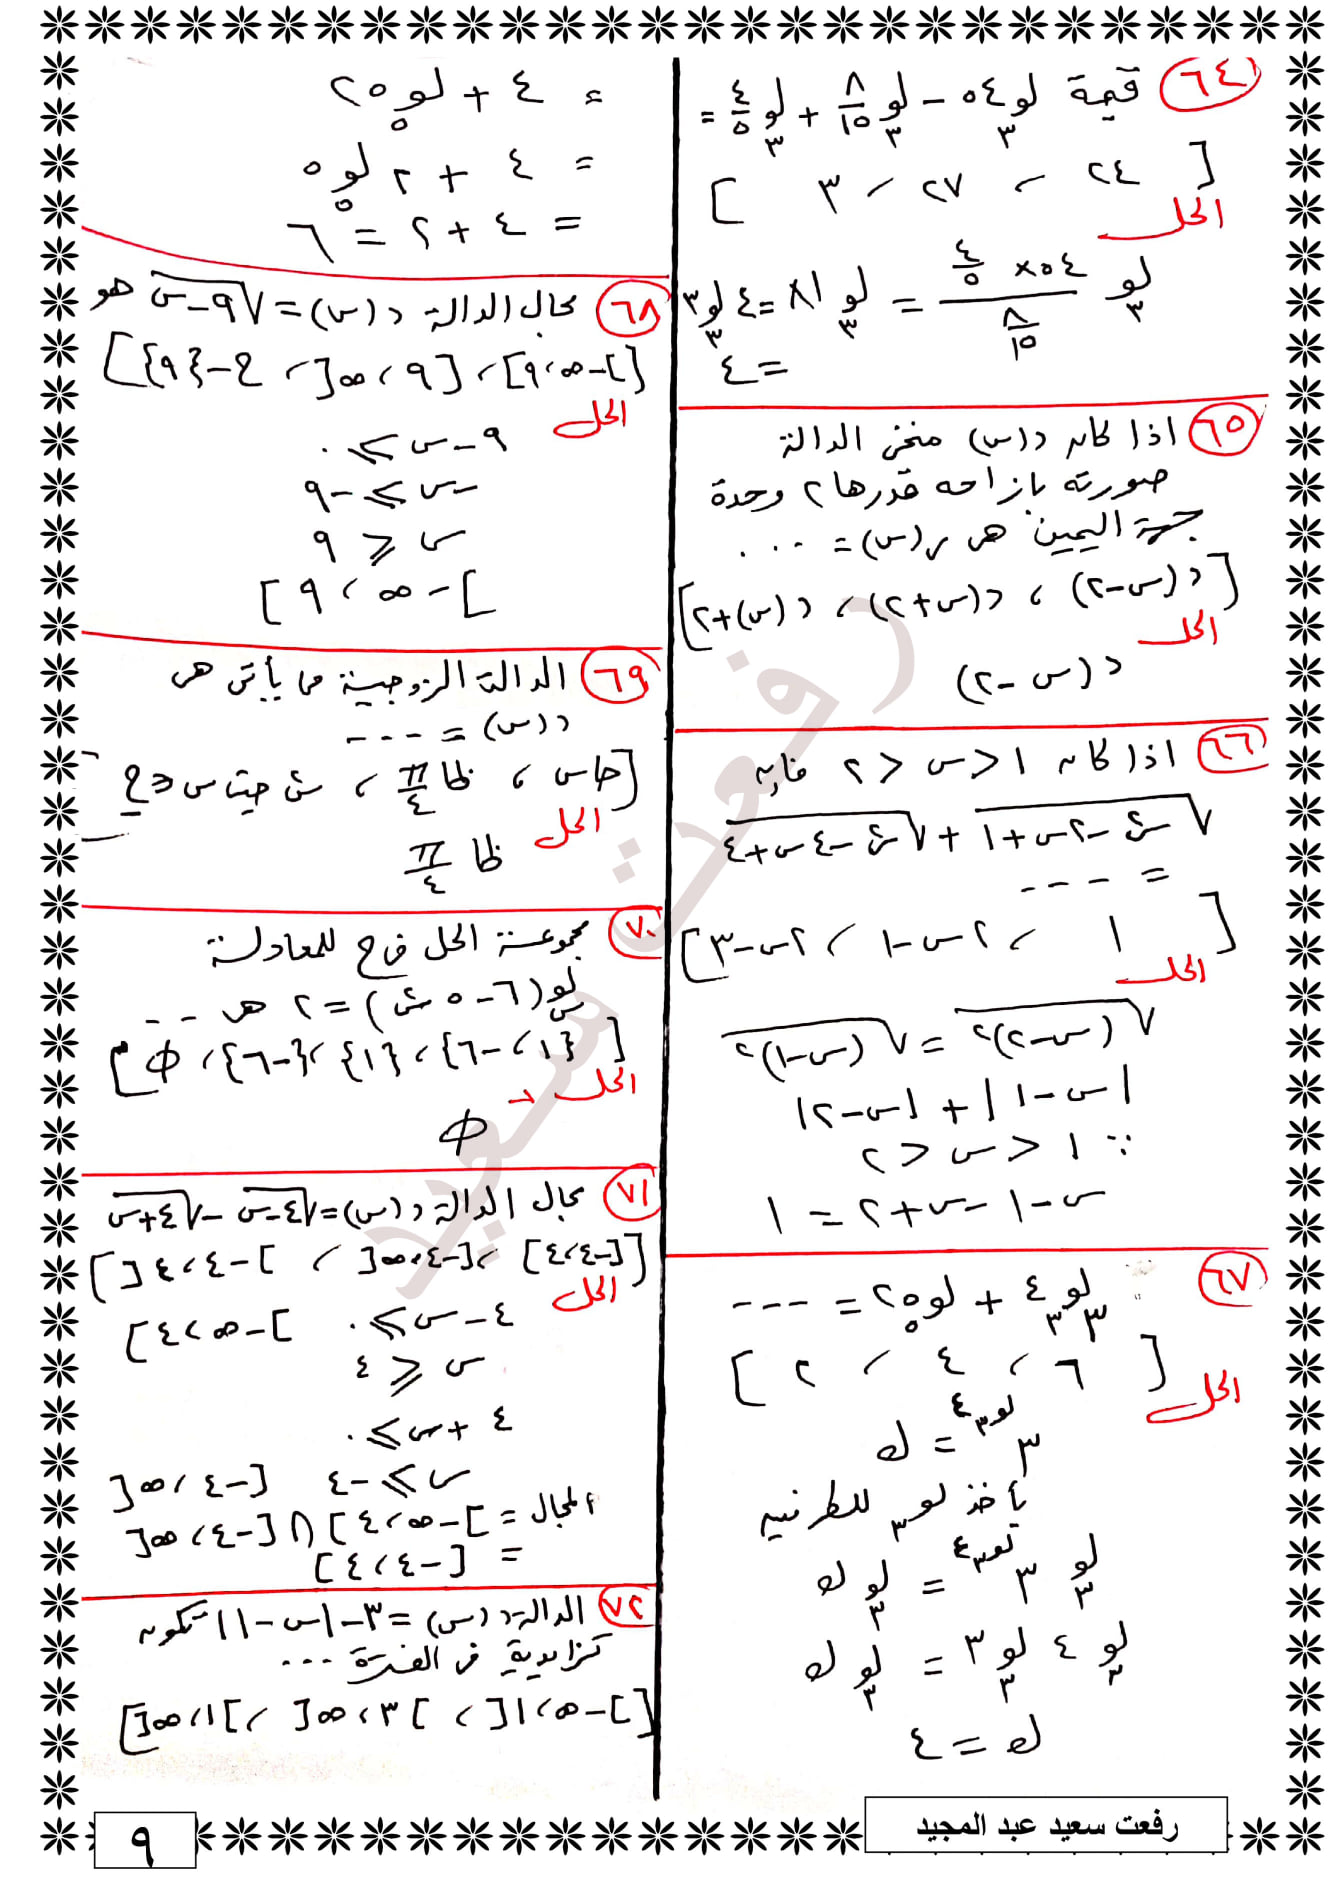 ٦٤ قيمة لو٣ ٥٤ - لو٣ ٨/١٥ + لو٣ ٤/٥ =
[ ٢٤ ، ٢٧ ، ٣ ]
الحل
لو٣ (٥٤ × ٤/٥)/(٨/١٥) = لو٣ ٨١ = ٤ لو٣ ٣
= ٤
٦٥ اذا كان د(س) منحنى الدالة
صورته بازاحه قدرها ٢ وحدة
جهة اليمين هى ر(س) = ...
[د(س-٢) ، د(س+٢) ، د(س)+٢]
الحل
د(س-٢)
٦٦ اذا كان ١ < س < ٢ فإن
√(س²-٢س+١) + √(س²-٤س+٤)
= ----
[ ١ ، ٢س-١ ، ٢س-٣]
الحل
√(س-٢)² = √(س-١)²
|س-١| + |س-٢|
∵ ١ < س < ٢
س-١-س+٢ = ١
٦٧ ٣^لو٣ ٤ + لو٥ ٢٥ = ---
[ ٦ ، ٤ ، ٢ ]
الحل
٣^لو٣ ٤ = ك
بأخذ لو٣ للطرفين
لو٣ ٣^لو٣ ٤ = لو٣ ك
لو٣ ٤ لو٣ ٣ = لو٣ ك
ك = ٤
= ٤ + لو٥ ٢٥
= ٤ + ٢ لو٥ ٥
= ٤ + ٢ = ٦
٦٨ مجال الدالة د(س) = √(٩-س) هو
[]-∞،٩] ، [٩،∞[ ، ح-{٩}]
الحل
٩-س ≥ ٠
-س ≥ -٩
س ≤ ٩
]-∞ ، ٩]
٦٩ الدالة الزوجية مما يأتى هى
د(س) = ---
[جاس ، ظا π/٤ ، س² جتاس
الحل
ظا π/٤
٧٠ مجموعة الحل فى ح للمعادلة
لوس(٦-٥س) = ٢ هـ ---
[{١،-٦} ، {١} ، {-٦} ، ϕ]
الحل
ϕ
٧١ مجال الدالة د(س) = √(٤-س) - √(٤+س)
[[-٤،٤] ، [-٤،∞[ ، ]-٤،٤[]
الحل
٤-س ≥ ٠ ]-∞،٤]
س ≤ ٤
٤+س ≥ ٠
س ≥ -٤ [-٤،∞[
المجال = ]-∞،٤] ∩ [-٤،∞[
= [-٤،٤]
٧٢ الدالة د(س) = ٣-|س-١| تكون
تزايدية فى الفترة ...
[]-∞،١[ ، ]٣،∞[ ، ]١،∞[]
رفعت سعيد
رفعت سعيد عبد المجيد
٩